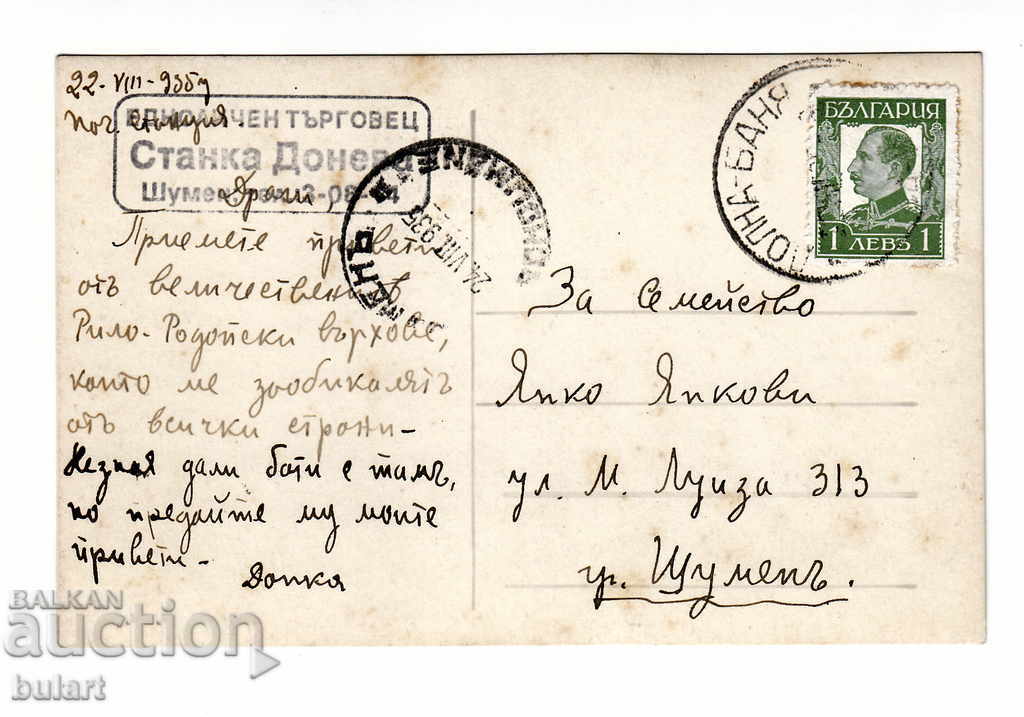 22-VIII-935г
Поч. Станция.
ЕДНОЛИЧЕН ТЪРГОВЕЦ
Станка Донева
Шумен
Драги,
Приемете привети
отъ величествения
Рило-Родопски върхове,
които ме заобикалятъ
отъ всички страни –
Незная дали бати е тамъ,
но предайте му моите
привети –
Донка
ШУМЕНЪ
24.VIII.935
ДОЛНА-БАНЯ
БЪЛГАРИЯ
1 ЛЕВЪ 1
За Семейство
Янко Янкови
ул. М. Луиза 313
гр. Шуменъ.
BALKAN
auction
bulart